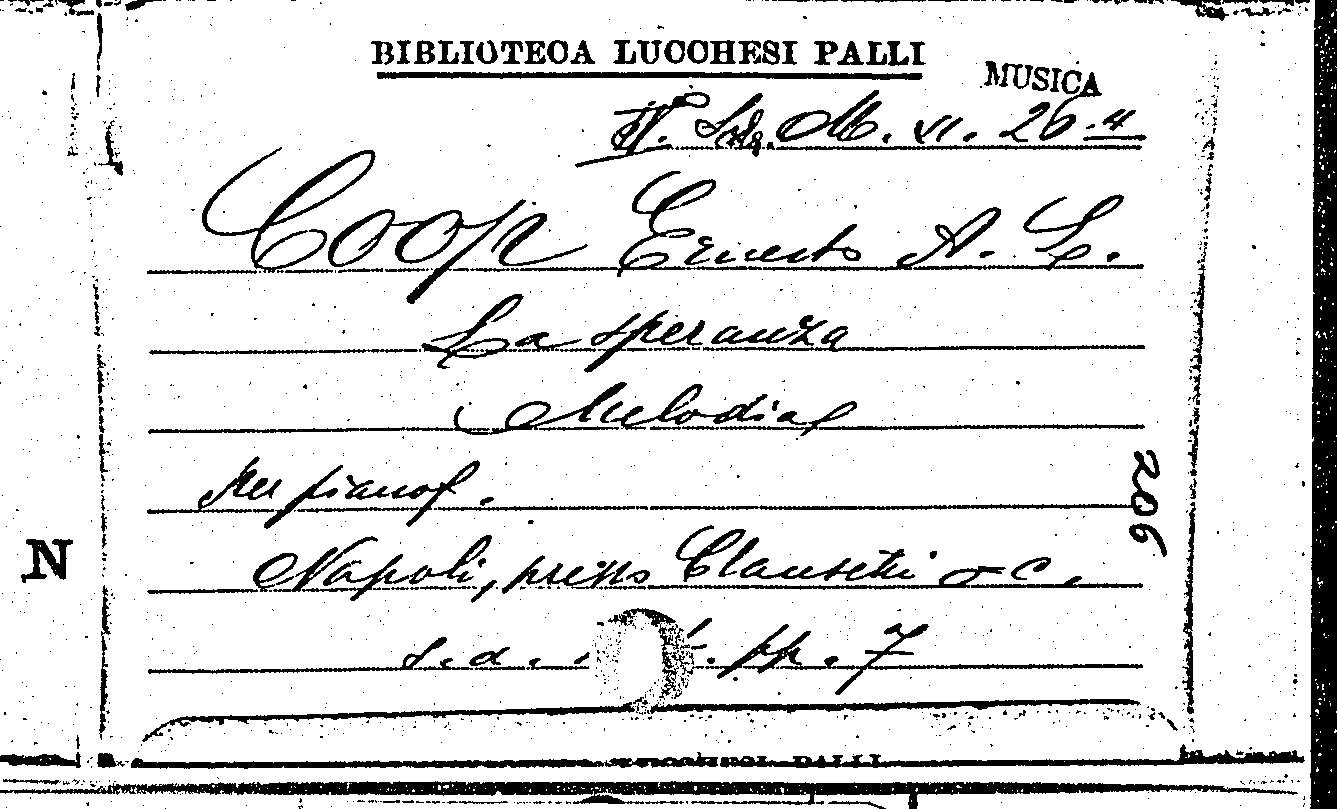 BIBLIOTECA LUCCHESI PALLI
MUSICA
M. VI. 26.4
Coop Ernesto A. L.
La speranza
Melodia
Per pianof.
206
N
Napoli, presso Clausetti e C.
s.d. pp. 7